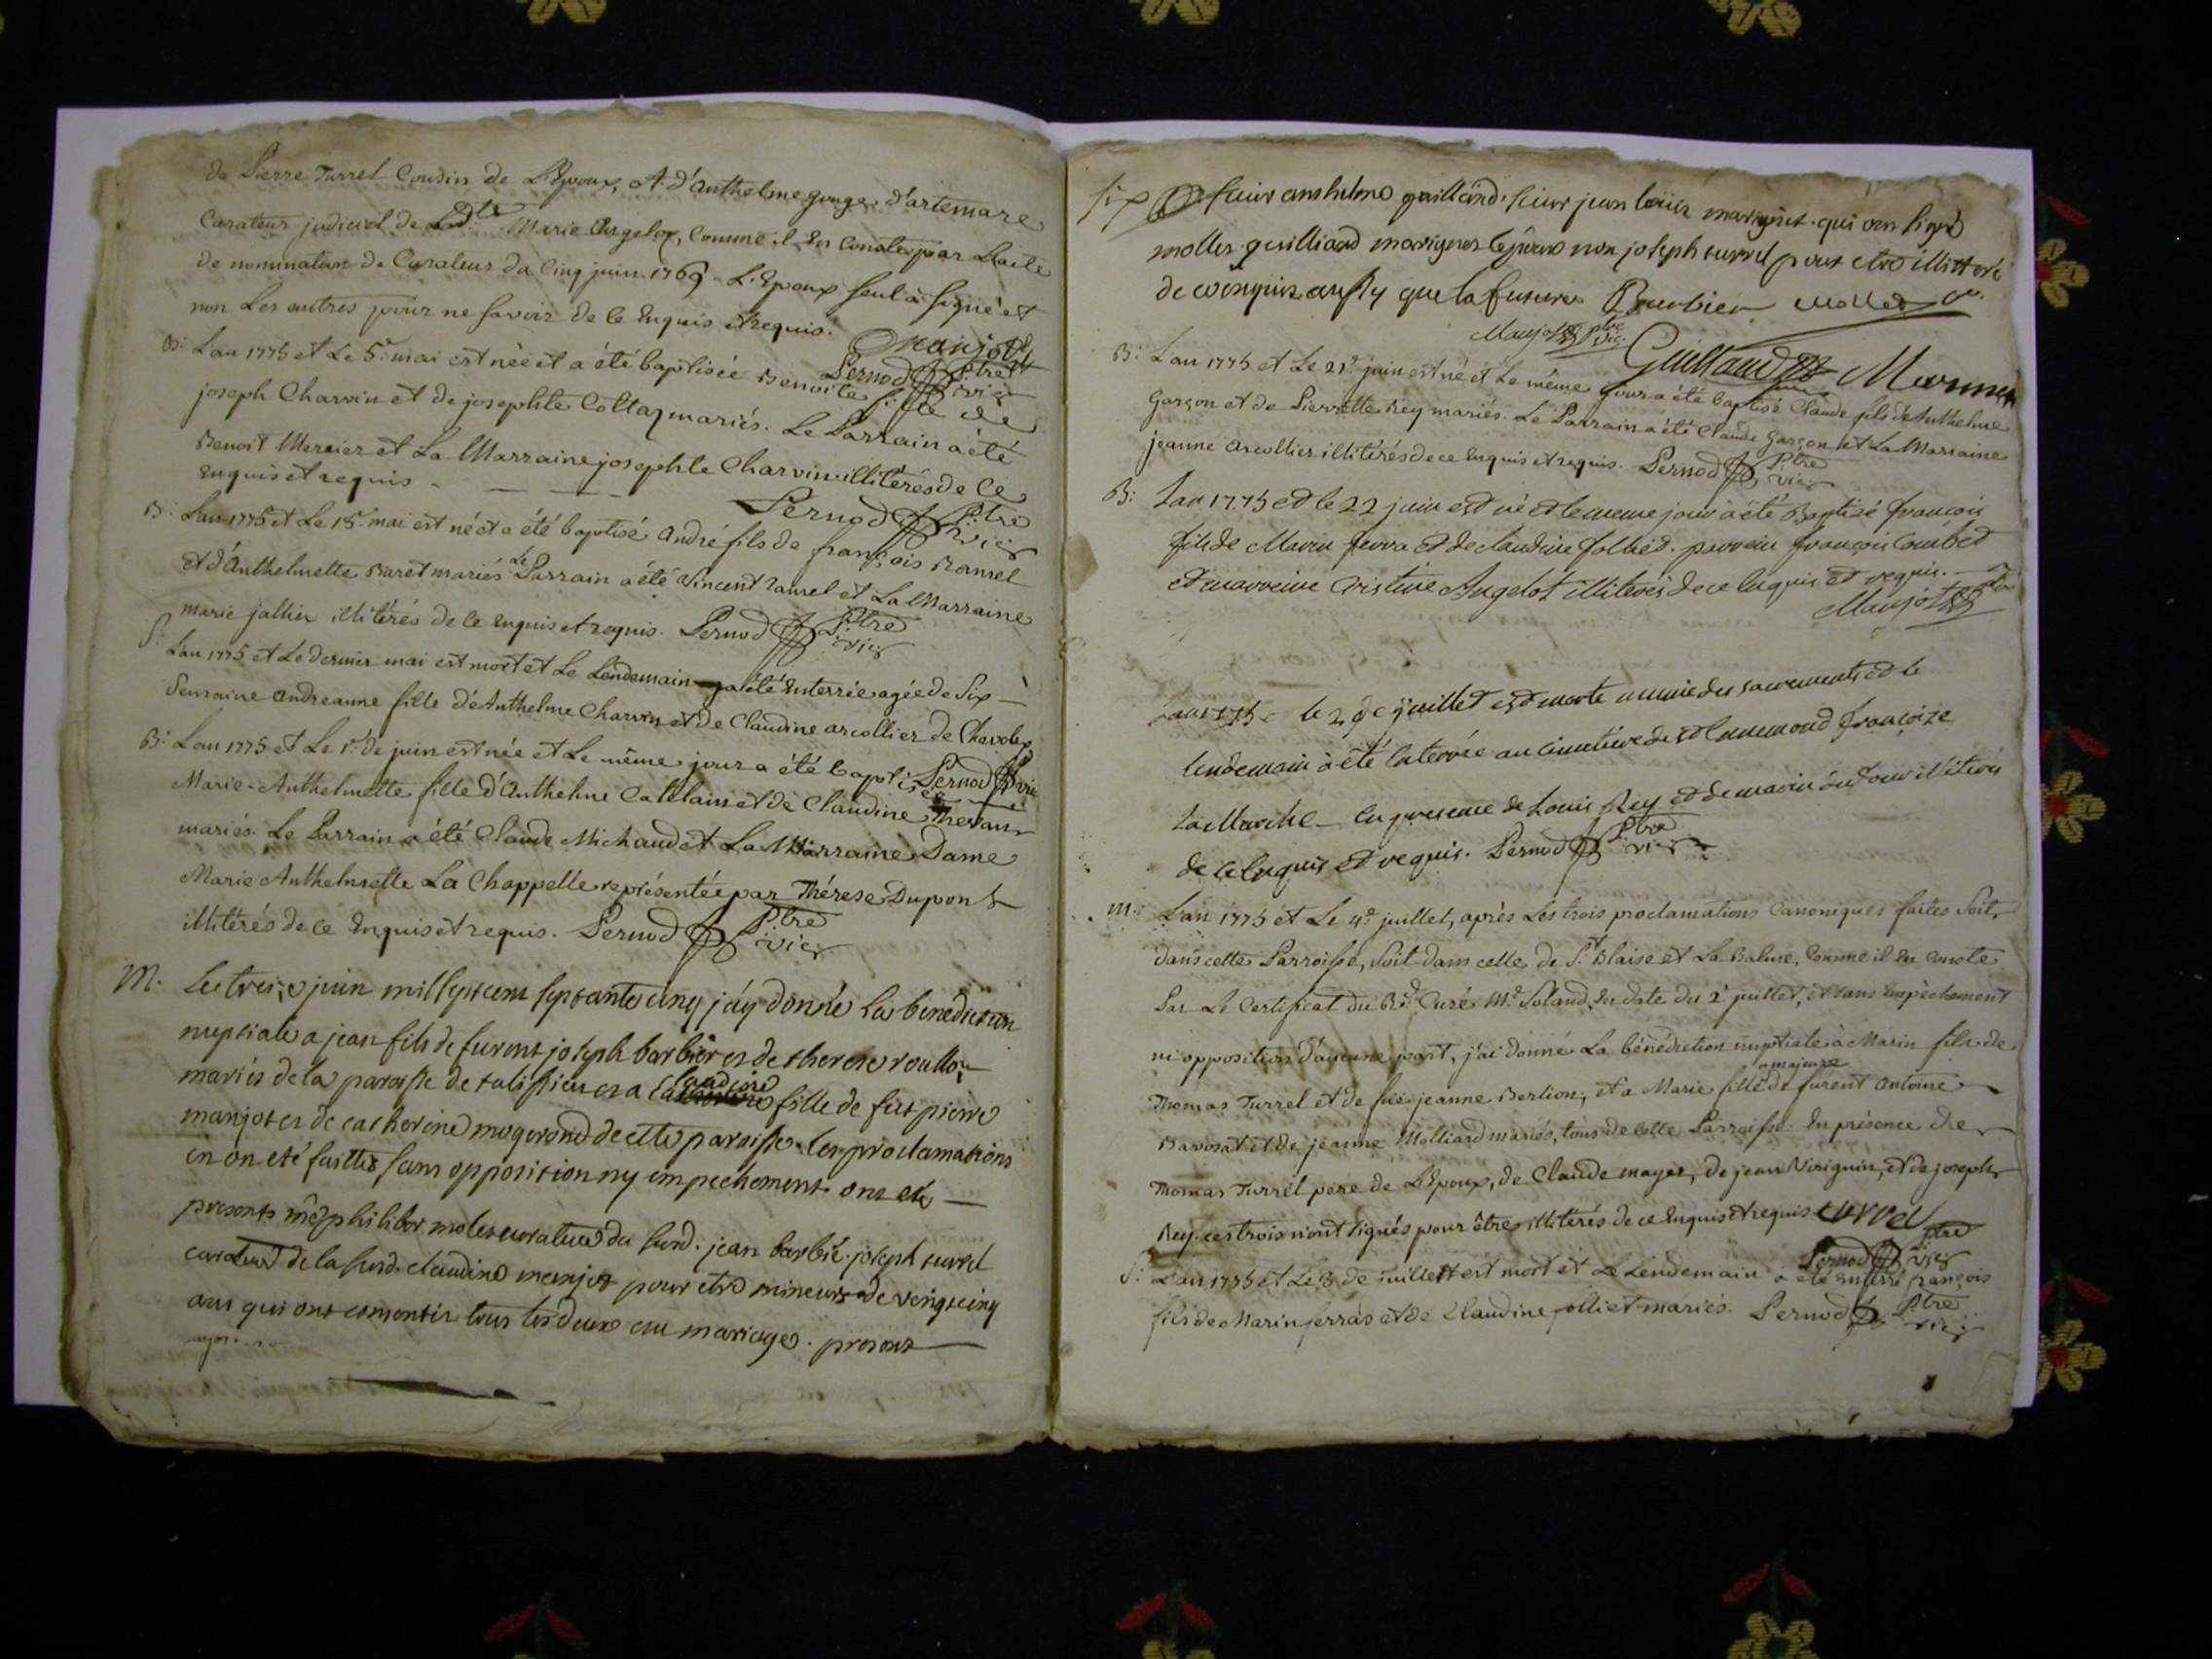 de Pierre Turrel Cousin de L'Epoux, et d'Anthelme gouge, d'artemare
Curateur judiciel de Lad.te Marie Angelox, Comme il en Conste par L'acte
de nomination de Curateur du Cinq juin 1769. L'Epoux seul à signé et
non Les autres pour ne savoir de ce Enquis et requis. Manjot
Pernod Ptre vic
B: L'an 1775 et Le 5e mai est née et a été baptisée Benoite fille de
joseph Charvin et de josephte Cottaz mariés. Le Parrain a été
Benoit Mercier et La Marraine josephte Charvin illitérés de ce
enquis et requis
Pernod Ptre vic
B: L'an 1775 et Le 18e mai est né et a été baptisé André fils de françois Ramel
et d'Anthelmette Buret mariés Le Parrain a été Vincent ramel et La Marraine
marie jallier illitérés de ce enquis et requis. Pernod Ptre vic
S: L'an 1775 et Le dernier mai est mort et Le Lendemain a été Enterrée agée de Six
Semaine andreanne fille d'Anthelme Charvin et de Claudine arcollier de Chavolex
Pernod vic
B: L'an 1775 et Le 1r de juin est née et Le même jour a été baptisée
Marie-Anthelmette fille d'Anthelme Catelain et de Claudine Thevan
mariés. Le Parrain a été Claude Michaud et La Marraine Dame
Marie Anthelmette La Chappelle représentée par Thérese Dupont
illitérés de ce Enquis et requis. Pernod Ptre vic
M. Le treize juin mil sept cent septante cinq j'ay donné la benediction
nuptiale a jean fils de furent joseph barbier et de therese
mariés de la paroisse de talissieu et a Claudine fille de fut pierre
manjot et de catherine mugerond de cette paroisse. les proclamations
en on eté faittes sans opposition ny empechement ont eté
presents me philibet molet curateur du surd. jean barbié. joseph turrel
curateur de la surd. claudine manjot pour etre mineurs de vengt cinq
ans qui ont consentis tous les deux au mariage. presents
six sieur anthelme guilland. sieur jean louis marignet. qui on signé
mollet. guilliand marignet l'epoux non joseph turrel pour etre illitteré
de ce enquis aussy que la future Barbier Mollet
Manjot ptre vic. Guilland
B: L'an 1775 et Le 21e juin est né et Le même jour a été baptisé Claude fils de Anthelme
Garçon et de Pierrette Rey mariés. Le Parrain a été Claude Garçon et La Marraine
jeanne arcollier illitérés de ce Enquis et requis. Pernod Ptre vic
B: L'an 1775 et le 22 juin est né et le meme jour à été Baptisé françois
fils de Marin ferra et de claudine jolliet. parrein françois Combet
et marreine Cristine Angelot illiterés de ce Enquis et requis.
Manjot
L'an 1775 le de juillet est morte munie des sacrements et le
lendemain à été enterrée au cimetière de st Ennemond françoize
La Marche en presence de Louis Rey et de marin illiterés
de ce Enquis et requis. Pernod Ptre vic
M: L'an 1775 et Le 4e juillet, après Les trois proclamations Canoniques faites Soit
dans cette Parroisse, Soit dans celle de St Blaise et La Balme, Comme il en Conste
Par Le Certificat du Rd Curé Mr Soland, en date du 2e juillet, et sans Empêchement
ni opposition d'aucune part, j'ai donné La bénédiction nuptiale à Marin fils de
majeure
Thomas Turrel et de fuë jeanne Berlion, et a Marie fille de furent antoine
Bavosat et de jeanne Molliard mariés, tous de cette Parroisse. En présence de
Thomas Turrel pere de L'Epoux, de Claude mayer, de jean Viriguin, et de joseph
Rey. ces trois n'ont signés pour être illitérés de ce Enquis et requis turrel
Pernod Ptre vic
S: L'an 1775 et Le 8 de juillet est mort et Le Lendemain a été Enterré françois
fils de Marin ferras et de Claudine jolliet mariés. Pernod Ptre vic